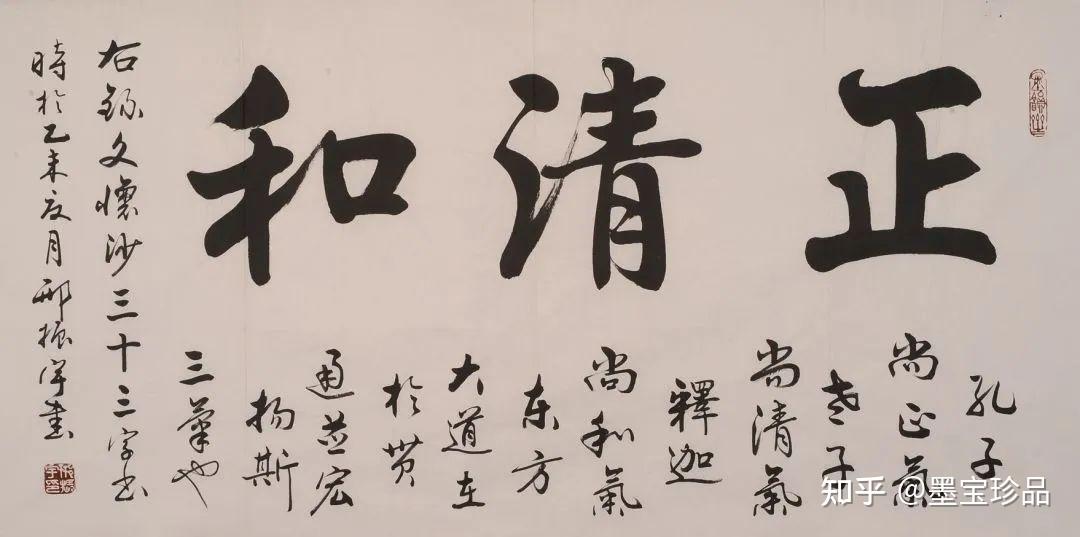 正清和
孔子
尚正氣
老子
尚清氣
釋迦
尚和氣
东方
大道在
於贯
通並宏
扬斯
三氣也
右錄文懷沙三十三字书
時於乙未夏月邢振宇書
知乎 @墨宝珍品